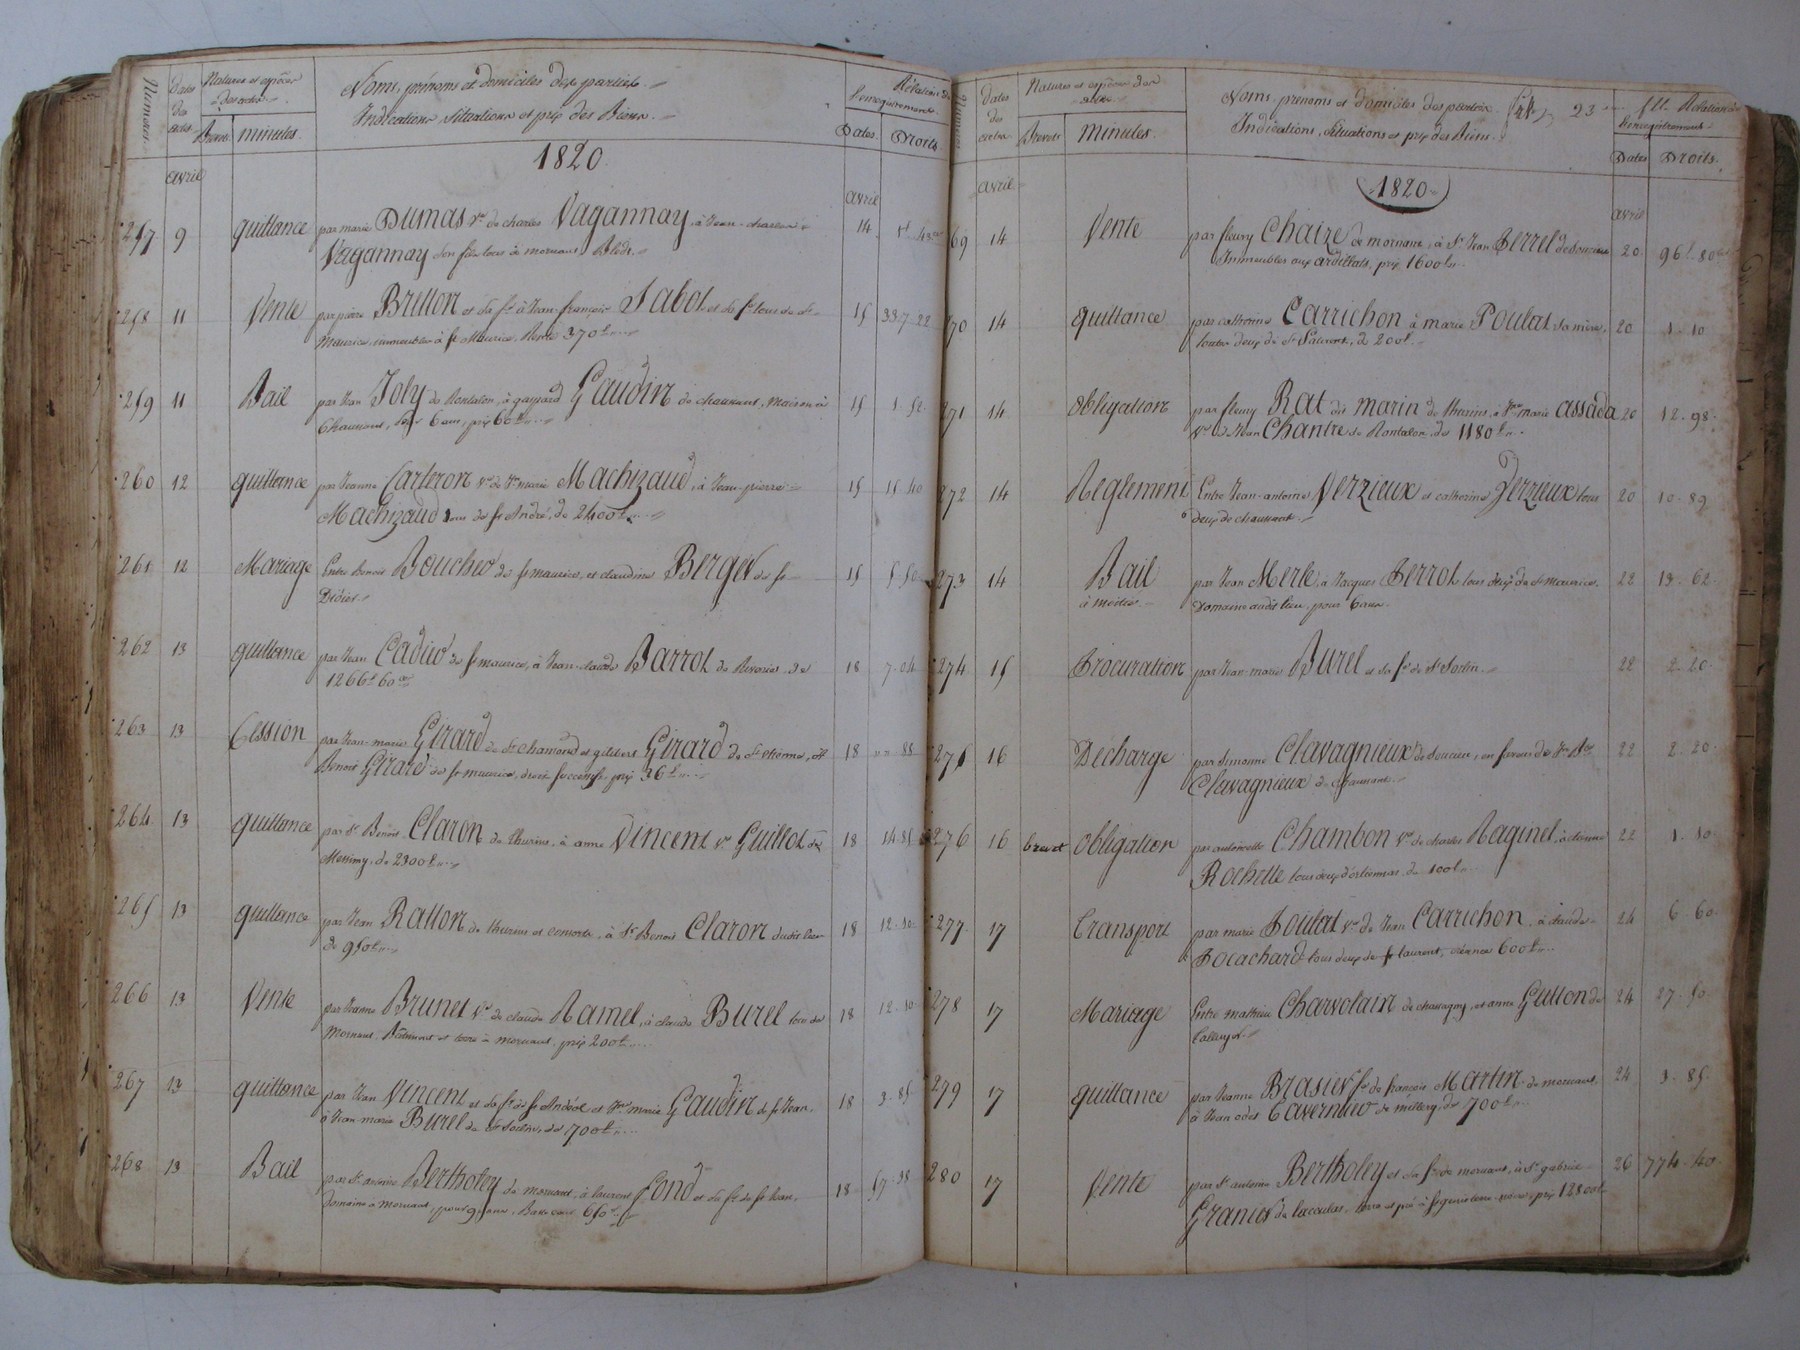 Numéros.
Dates des actes
Natures et espèces des actes.
Brevets. minutes.
Noms, prénoms et domiciles des parties.
Indications, situations et prix des Biens.
Relation de l'enregistrement.
Dates. Droits.
1820.
avril avril
257 9 quittance par marie Dumas Ve de charles Vagannay, à Jean-charles 14
Vagannay son fils tous de mornant
258 11 Vente par pierre Britton et sa fe à Jean-françois Sabot et sa fe tous de St 15 337-22
Maurice, immeubles à St Maurice, 370f
259 11 Bail par Jean Joly de Rontalon, à gaspard Gaudin de chaussant, maison à 15 1-52
Chaussant, pour 6 ans, prix 66f
260 12 quittance par Jeanne Carteron Ve de Jn marie Machizaud, à Jean-pierre 15 11-40
Machizaud tous de St André, de 2400f
261 12 Mariage Entre Benoit Boucher de St maurice, et claudine Berger de St 15 5-50
Didier
262 13 quittance par Jean Cadier de St maurice, à Jean-claude Barrot de Riverie, de 18 7-04
1266f 60c
263 13 Cession par Jean-marie Girard de St chamond et gilibert Girard de St etienne, à
Benoit Girard de St maurice, droits successifs, prix 36f 18 88
264 13 quittance par Sr Benoit Claron de thurins, à anne Vincent Ve Guillot de 18
Messimy, de 2300f
265 13 quittance par Jean Ratton de thurins et consorts, à Sr Benoit Claron dudit lieu 18 12-10
de 950f
266 13 Vente par Jeanne Brunet Ve de claude Ramel, à claude Burel tous de 18 12-10
Mornant, Bâtiment et terre à mornant, prix 200f
267 13 quittance par Jean Vincent et sa fe de St Andéol et Jne marie Gaudin de St Jean, 18 3-85
à Jean-marie Burel de St Sorlin, de 700f
268 13 Bail par Sr antoine Bertholey de mornant, à laurent Fond et sa fe de St Jean, 18 57-38
domaine à Mornant, pour 9 ans, 650f
Dates des actes
Natures et espèces des actes
Brevets minutes.
Noms, prénoms et domiciles des parties. 23
Indications, situations et prix des Biens.
Relation de l'enregistrement
Dates Droits.
1820
avril avril
69 14 Vente par fleury Chaize de mornant, à Sr Jean Perret de Soucieu 20 96f-80c
Immeubles aux ardillats, prix 1600f
270 14 quittance par catherine Carrichon à marie Poulat sa mère, 20 1-10
toutes deux de St Laurent, de 200f
271 14 obligation par fleury Rat dit marin de thurins, à Jne marie assada 20 12-98
Ve de Jean Chantre de Rontalon, de 1180f
272 14 Reglement Entre Jean-antoine Verzieux et catherine Verzieux tous 20 10-89
deux de chaussant
273 14 Bail par Jean Merle, à Jacques Perrot tous deux de St maurice, 22 13-62
à moitié Domaine audit lieu, pour 6 ans
274 15 Procuration par Jean-marie Burel et sa fe de St Sorlin 22 2-20
275 16 Decharge par Simonne Clavagnieux de Soucieu, en faveur de 22 2-20
Clavagnieux de chaussant
276 16 brevet obligation par antoinette Chambon Ve de charles Raginel, à étienne 22 1-10
Rochette tous deux d'orliennas, de 100f
277 17 Transport par marie Poulat Ve de Jean Carrichon, à claude 24 6-60
Pocachard tous deux de St laurent, créance 600f
278 17 Mariage Entre mathieu Charvolain de chassagny, et anne Gutton de 24 27-50
Talluyers
279 17 quittance par Jeanne Brasier fe de françois Martin de mornant, 24 3-85
à Jean odet Tavernier de millery, de 700f
280 17 Vente par Sr antoine Bertholey et sa fe de mornant, à Sr gabriel 26 774-40
Granier de lacoulas, terre et pré à prix 12800f